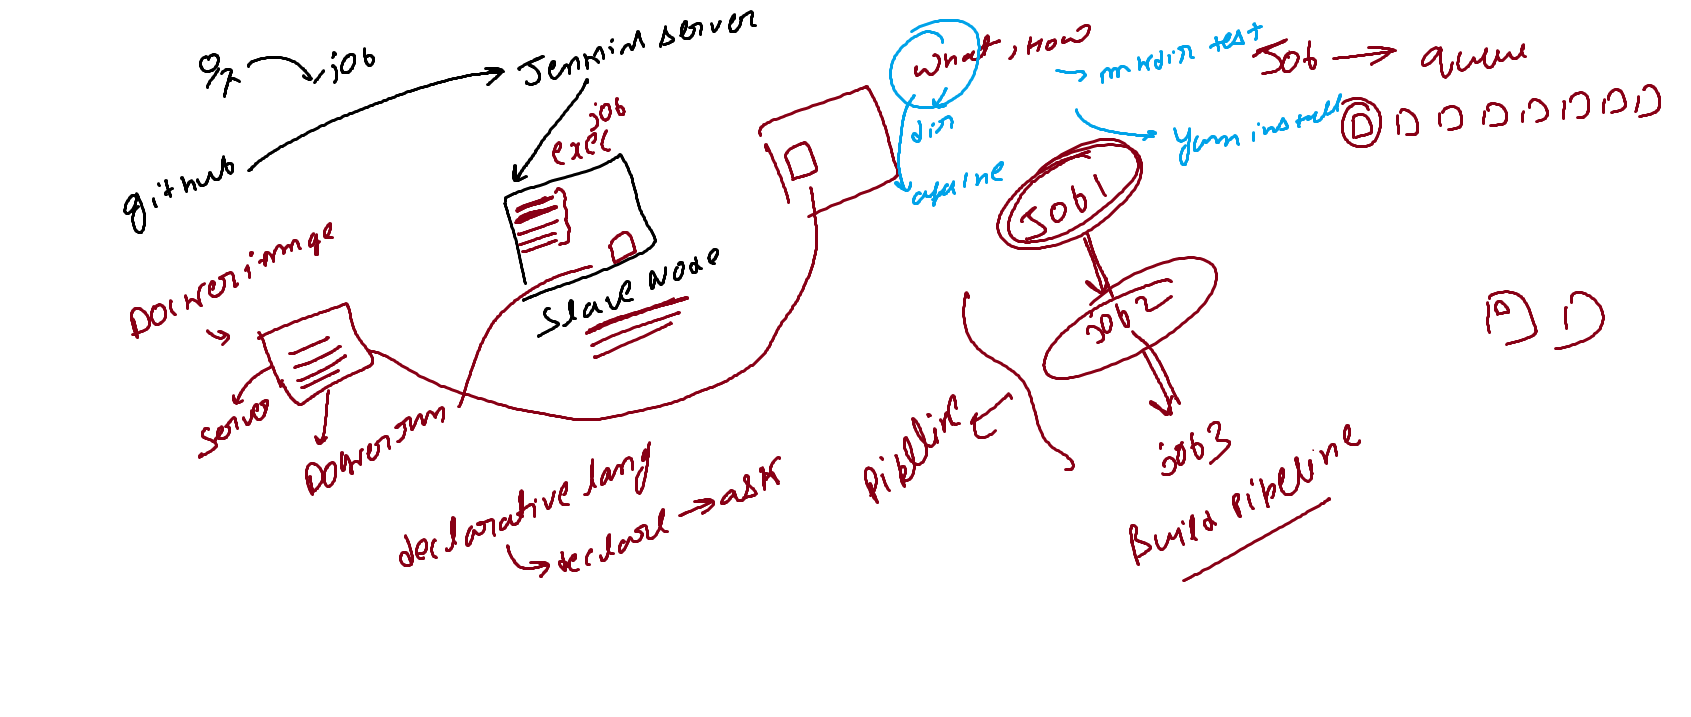 job
Jenkins server
github
job
exec
Slave Node
Docker image
server
Docker run
declarative lang
declare → ask
what, how
dir
mkdir test
yum install
Job → queue
Job1
job2
job3
Pipeline
Build Pipeline